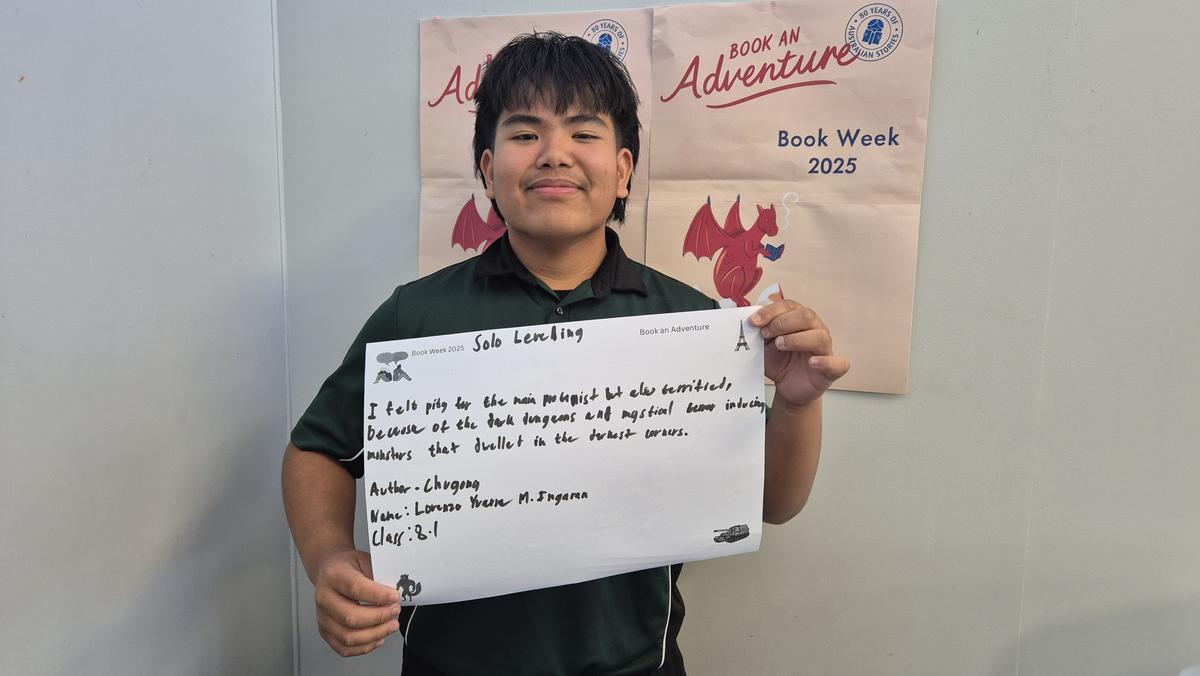 80 YEARS OF
BOOK AN
Adventure
80 YEARS OF AUSTRALIAN STORIES
Book Week
2025
Book Week 2025
Solo Levelling
Book an Adventure
I felt pity for the main protagnist but also terrified,
because of the dark dungeons and mystical terror inducing
monsters that dwelled in the darkest corners.
Author - Chugong
Name: Lorenzo M. Ingaran
Class: 8.1